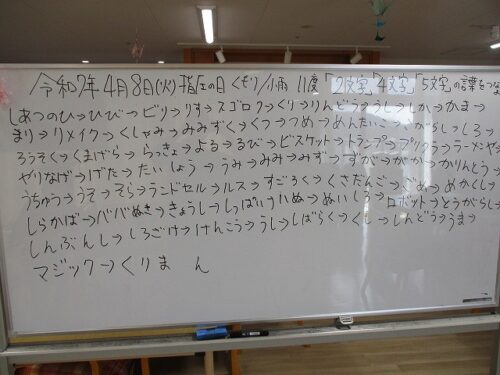 令和7年4月8日(火)指圧の日くもり/小雨 11度「2文字」「4文字」「5文字」の言葉をつな
しあつのひ→ひび→ビリ→りす→スゴロク→くり→りんどう→うし→しか→かま→
まり→リメイク→くしゃみ→みみずく→くつ→つめ→めんたいこ→こがらし→しろ→
ろうそく→くまげら→らっきょ→よる→るび→ビスケット→トランプ→プリクラ→ラーメン→や
やりなげ→げた→たいしょう→うみ→みみ→みみず→ずが→がか→かりんとう→
うちゅう→うそ→そら→ランドセル→ルス→すごろく→くさだんご→ごめ→めかくし→
しらかば→ババぬき→きょうし→しっぱい→いぬ→ぬいしろ→ロボット→とうがらし→
しんぶんし→しろざけ→けんこう→うし→しばらく→くし→しんどう→うま→
マジック→くりまん